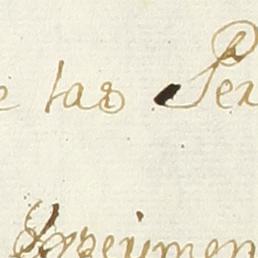 e las Per
Experimen